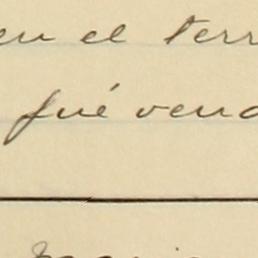 en el terr
fué vend